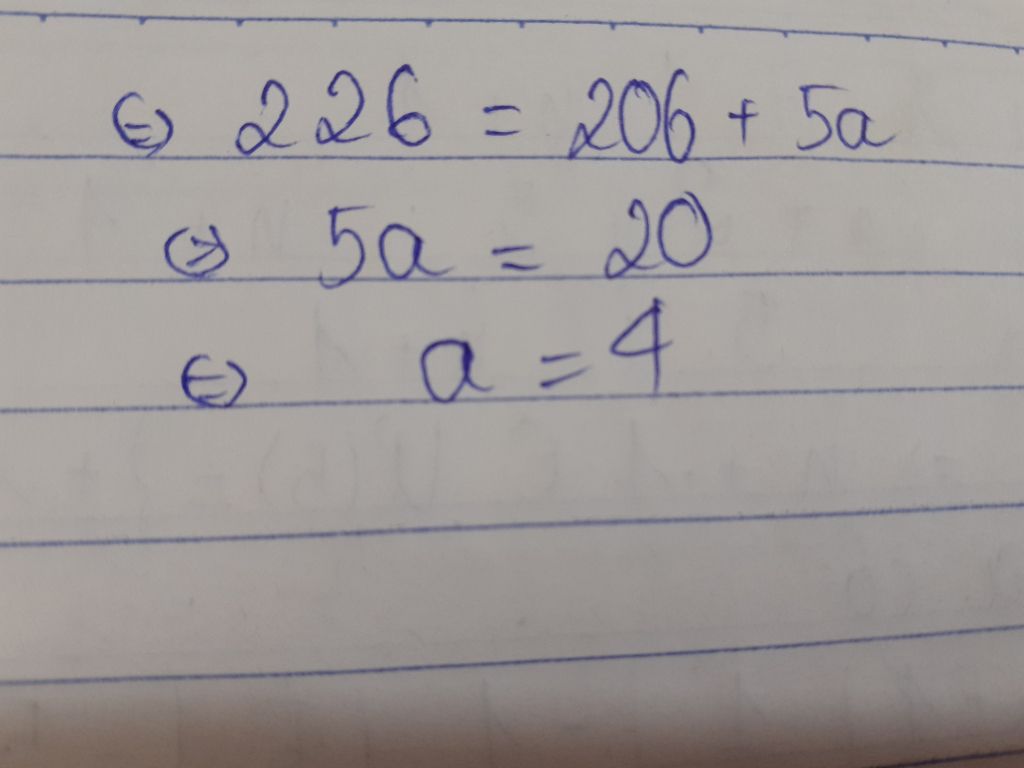 ⇔ 226 = 206 + 5a
⇔ 5a = 20
⇔ a = 4